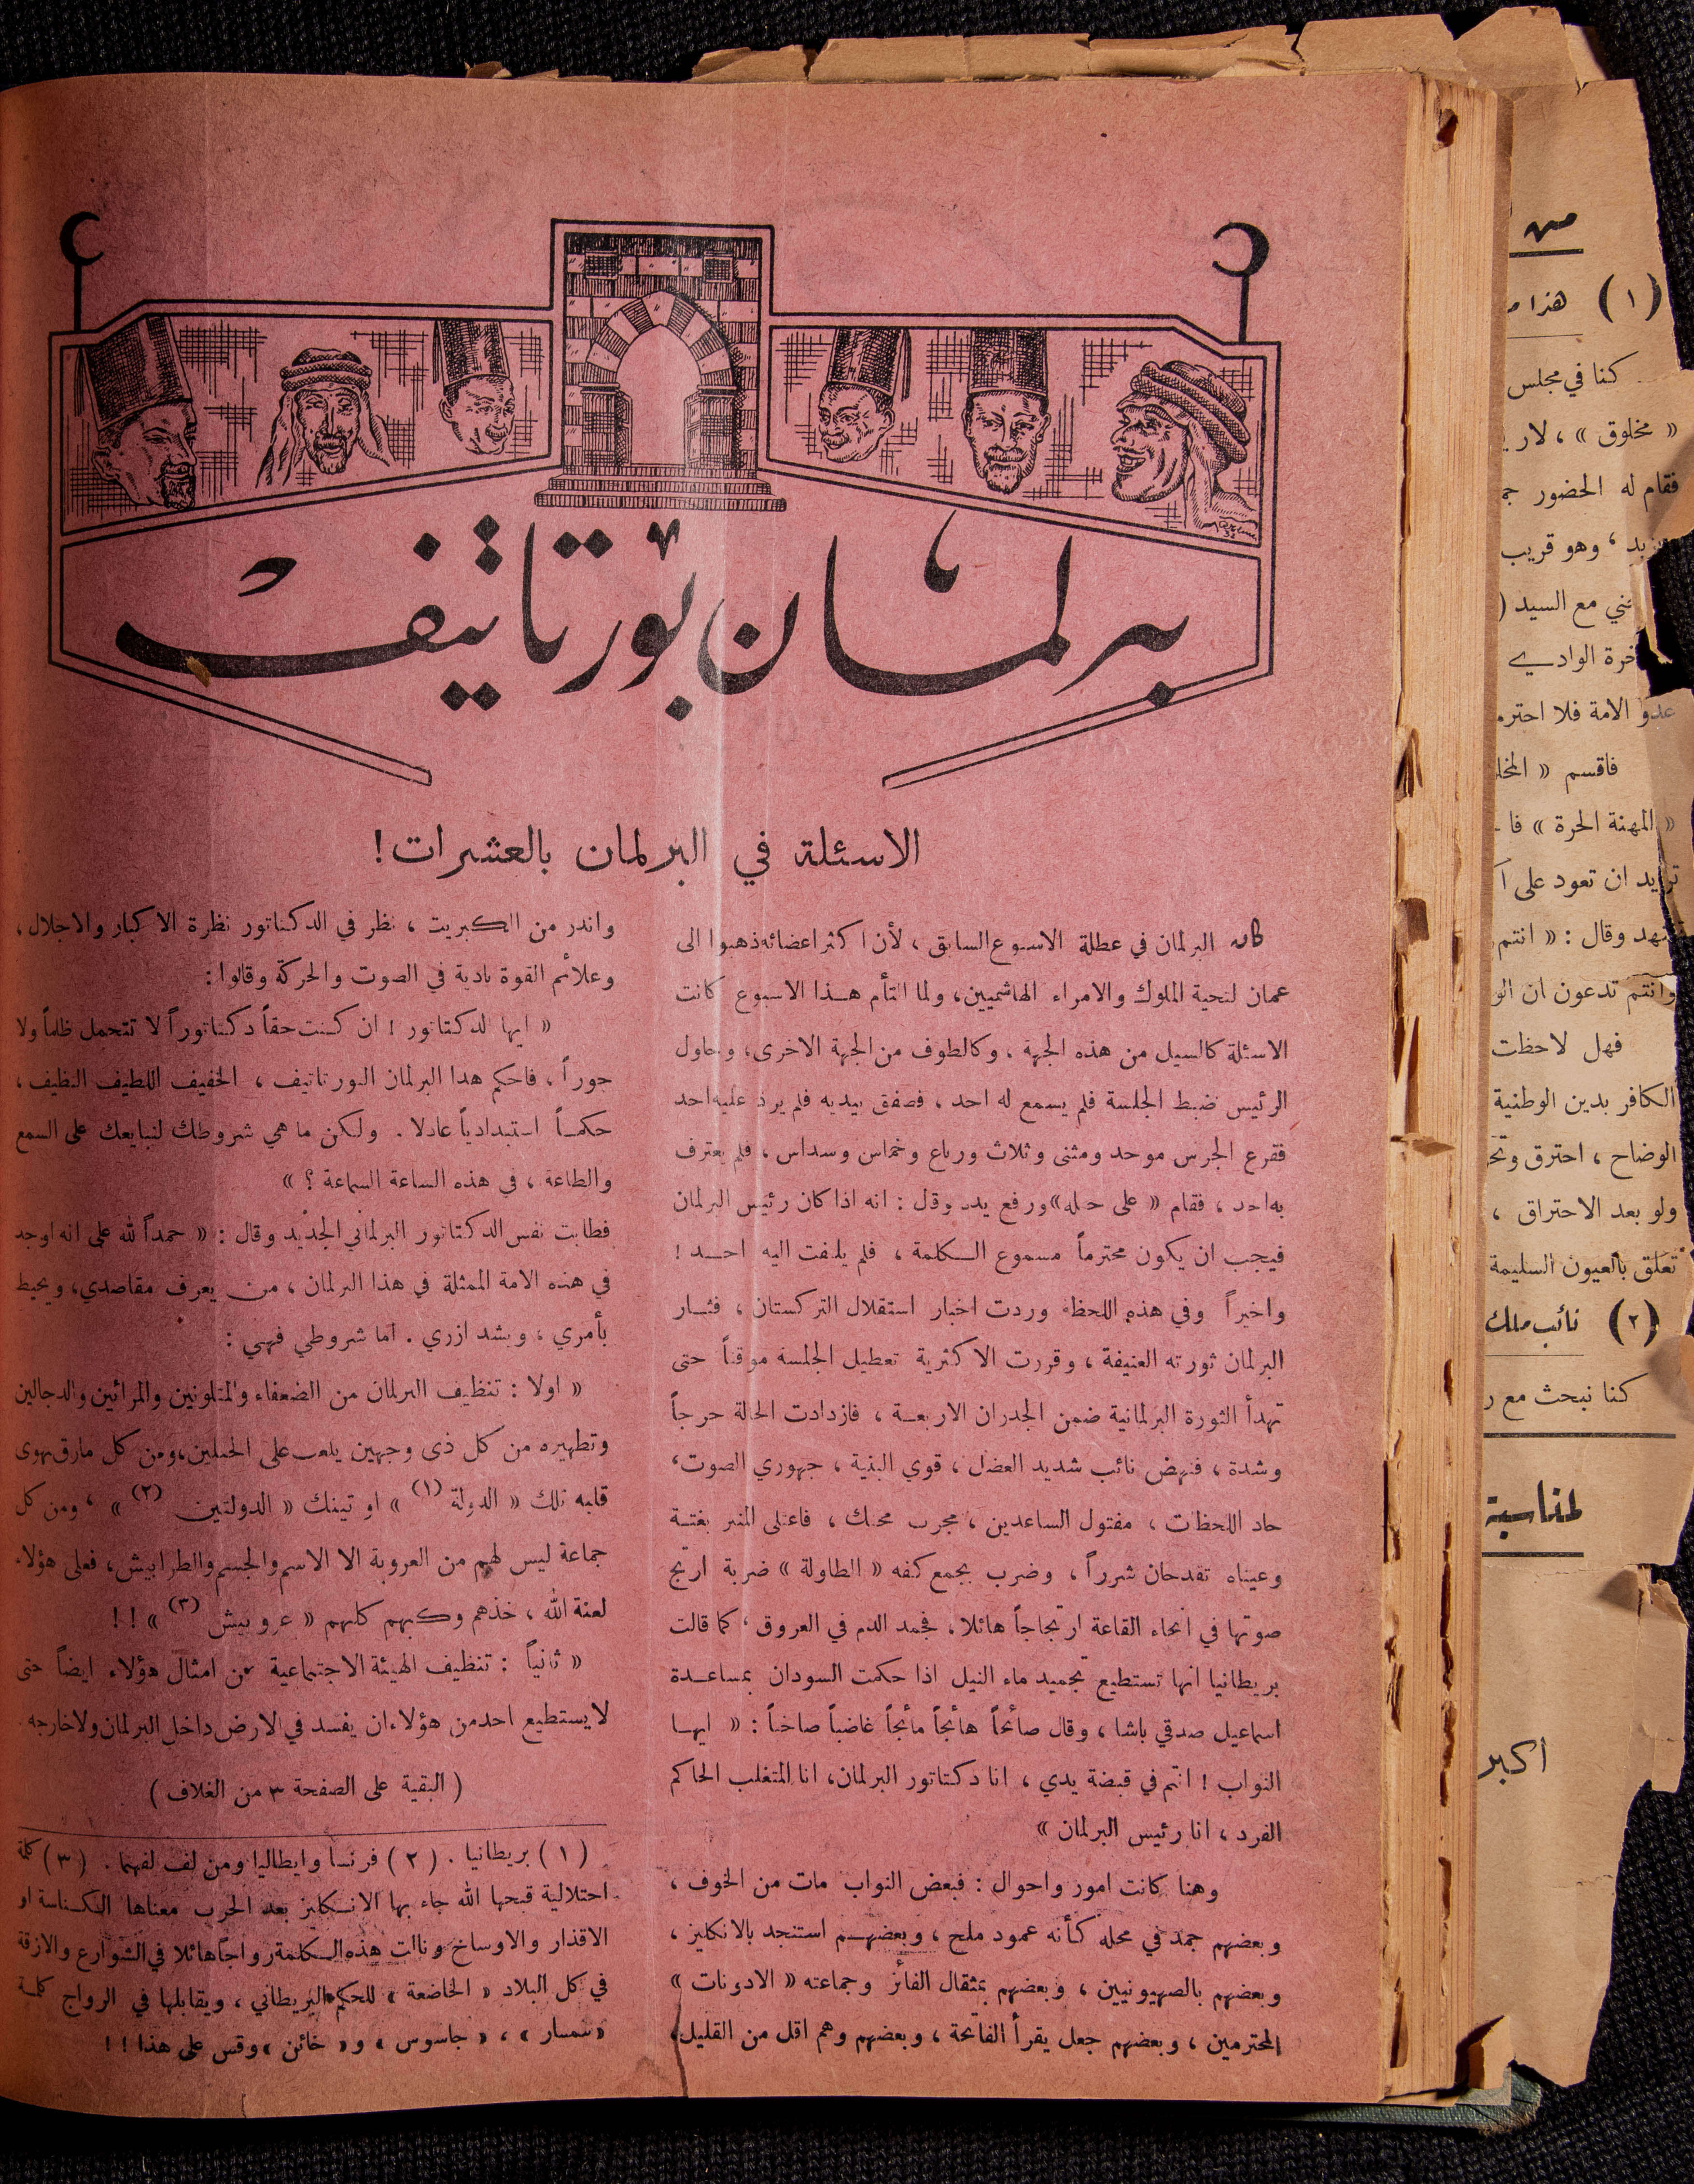 برلمان بورتاتيف
الاسئلة في البرلمان بالعشرات!
كان البرلمان في عطلة الاسبوع السابق ، لأن اكثر اعضائه ذهبوا الى
عمان لتحية الملوك والامراء الهاشميين، ولما التأم هـذا الاسبوع كانت
الاسئلة كالسيل من هذه الجهة ، وكالطوف من الجهة الاخرى، وحاول
الرئيس ضبط الجلسة فلم يسمع له احد ، فصفق بيديه فلم يرد عليه احد
فقرع الجرس موحد ومثنى وثلاث ورباع وخماس وسداس ، فلم يعترف
به احد ، فقام « على حيله» ورفع يده وقال : انه اذا كان رئيس البرلمان
فيجب ان يكون محترماً مسموع الـكلمة ، فلم يلتفت اليه احـد !
واخيراً وفي هذه اللحظة وردت اخبار استقلال التركستان ، فثـار
البرلمان ثورته العنيفة ، وقررت الاكثرية تعطيل الجلسة موقتاً حتى
تهدأ الثورة البرلمانية ضمن الجدران الاربعـة ، فازدادت الحالة حرجاً
وشدة ، فنهض نائب شديد العضل ، قوي البنية ، جهوري الصوت،
حاد اللحظات ، مفتول الساعدين ، مجرب محنك ، فاعتلى المنبر بغتـة
وعيناه تقدحان شرراً ، وضرب بجمع كفه « الطاولة » ضربة ارتج
صوتها في انحاء القاعة ارتجاجاً هائلا ، فجمد الدم في العروق ، كما قالت
بريطانيا انها تستطيع تجميد ماء النيل اذا حكمت السودان بمساعـدة
اسماعيل صدقي باشا ، وقال صائحاً هائجاً مائجاً غاضباً صاخباً : « ايهـا
النواب ! انتم في قبضة يدي ، انا دكتاتور البرلمان، انا المتغلب الحاكم
الفرد ، انا رئيس البرلمان »
وهنا كانت امور واحوال : فبعض النواب مات من الخوف ،
وبعضهم جمد في محله كأنه عمود ملح ، وبعضهـم استنجد بالانكليز ،
وبعضهم بالصهيونيين ، وبعضهم بمثقال الفائز وجماعته « الادونات »
المحترمين ، وبعضهم جعل يقرأ الفاتحة ، وبعضهم وهم اقل من القليل،
واندر من الكبريت ، نظر في الدكتاتور نظرة الاكبار والاجلال ،
وعلائم القوة بادية في الصوت والحركة وقالوا :
« ايها الدكتاتور ! ان كنت حقاً دكتاتوراً لا تتحمل ظلماً ولا
جوراً ، فاحكم هذا البرلمان البورتاتيف ، الخفيف اللطيف النظيف ،
حكمـاً استبدادياً عادلا . ولكن ما هي شروطك لنبايعك على السمع
والطاعة ، في هذه الساعة السماعة ؟ »
فطابت نفس الدكتاتور البرلماني الجديد وقال : « حمداً لله على انه اوجد
في هذه الامة الممثلة في هذا البرلمان ، من يعرف مقاصدي، ويحيط
بأمري ، ويشد ازري . اما شروطي فهي :
« اولا : تنظيف البرلمان من الضعفاء والمتلونين والمرائين والدجالين
وتطهيره من كل ذى وجهين يلعب على الحبلين، ومن كل مارق يهوى
قلبه تلك « الدولة (١) » او تينك « الدولتين (٢) » ، ومن كل
جماعة ليس لهم من العروبة الا الاسم والجسم والطرابيش، فعلى هؤلاء
لعنة الله ، خذهم وكبهم كلهم « عروبيش (٣) » ! !
« ثانياً : تنظيف الهيئة الاجتماعية من امثال هؤلاء ايضاً حتى
لا يستطيع احد من هؤلاء ان يفسد في الارض داخل البرلمان ولا خارجه .
( البقية على الصفحة ٣ من الغلاف )
( ١ ) بريطانيا . ( ٢ ) فرنسا وايطاليا ومن لف لفهما . ( ٣ ) كلمة
احتلالية قبحها الله جاء بها الانـكليز بعد الحرب معناها الـكناسة او
الاقذار والاوساخ ونالت هذه الـكلمة رواجاً هائلا في الشوارع والازقة
في كل البلاد « الخاضعة » للحكم البريطاني ، ويقابلها في الرواج كلمـة
«سمسار » ، « جاسوس » و« خائن » وقس على هذا ! !
(١) هذا
كنا في مجلس
« مخلوق » ،
فقام له الحضور
، وهو قريب
مع السيد (
الوادي
عدو الامة فلا
فاقسم «
« المهنة الحرة »
تريد ان تعود على
وقال : « انتم
وانتم تدعون ان
فهل لاحظت
الكافر بدين الوطنية
الوضاح ، احترق
ولو بعد الاحتراق ،
تعلق بالعيون السليمة
(٢) نائب ملك
كنا نبحث مع
لمناسبة
اكبر